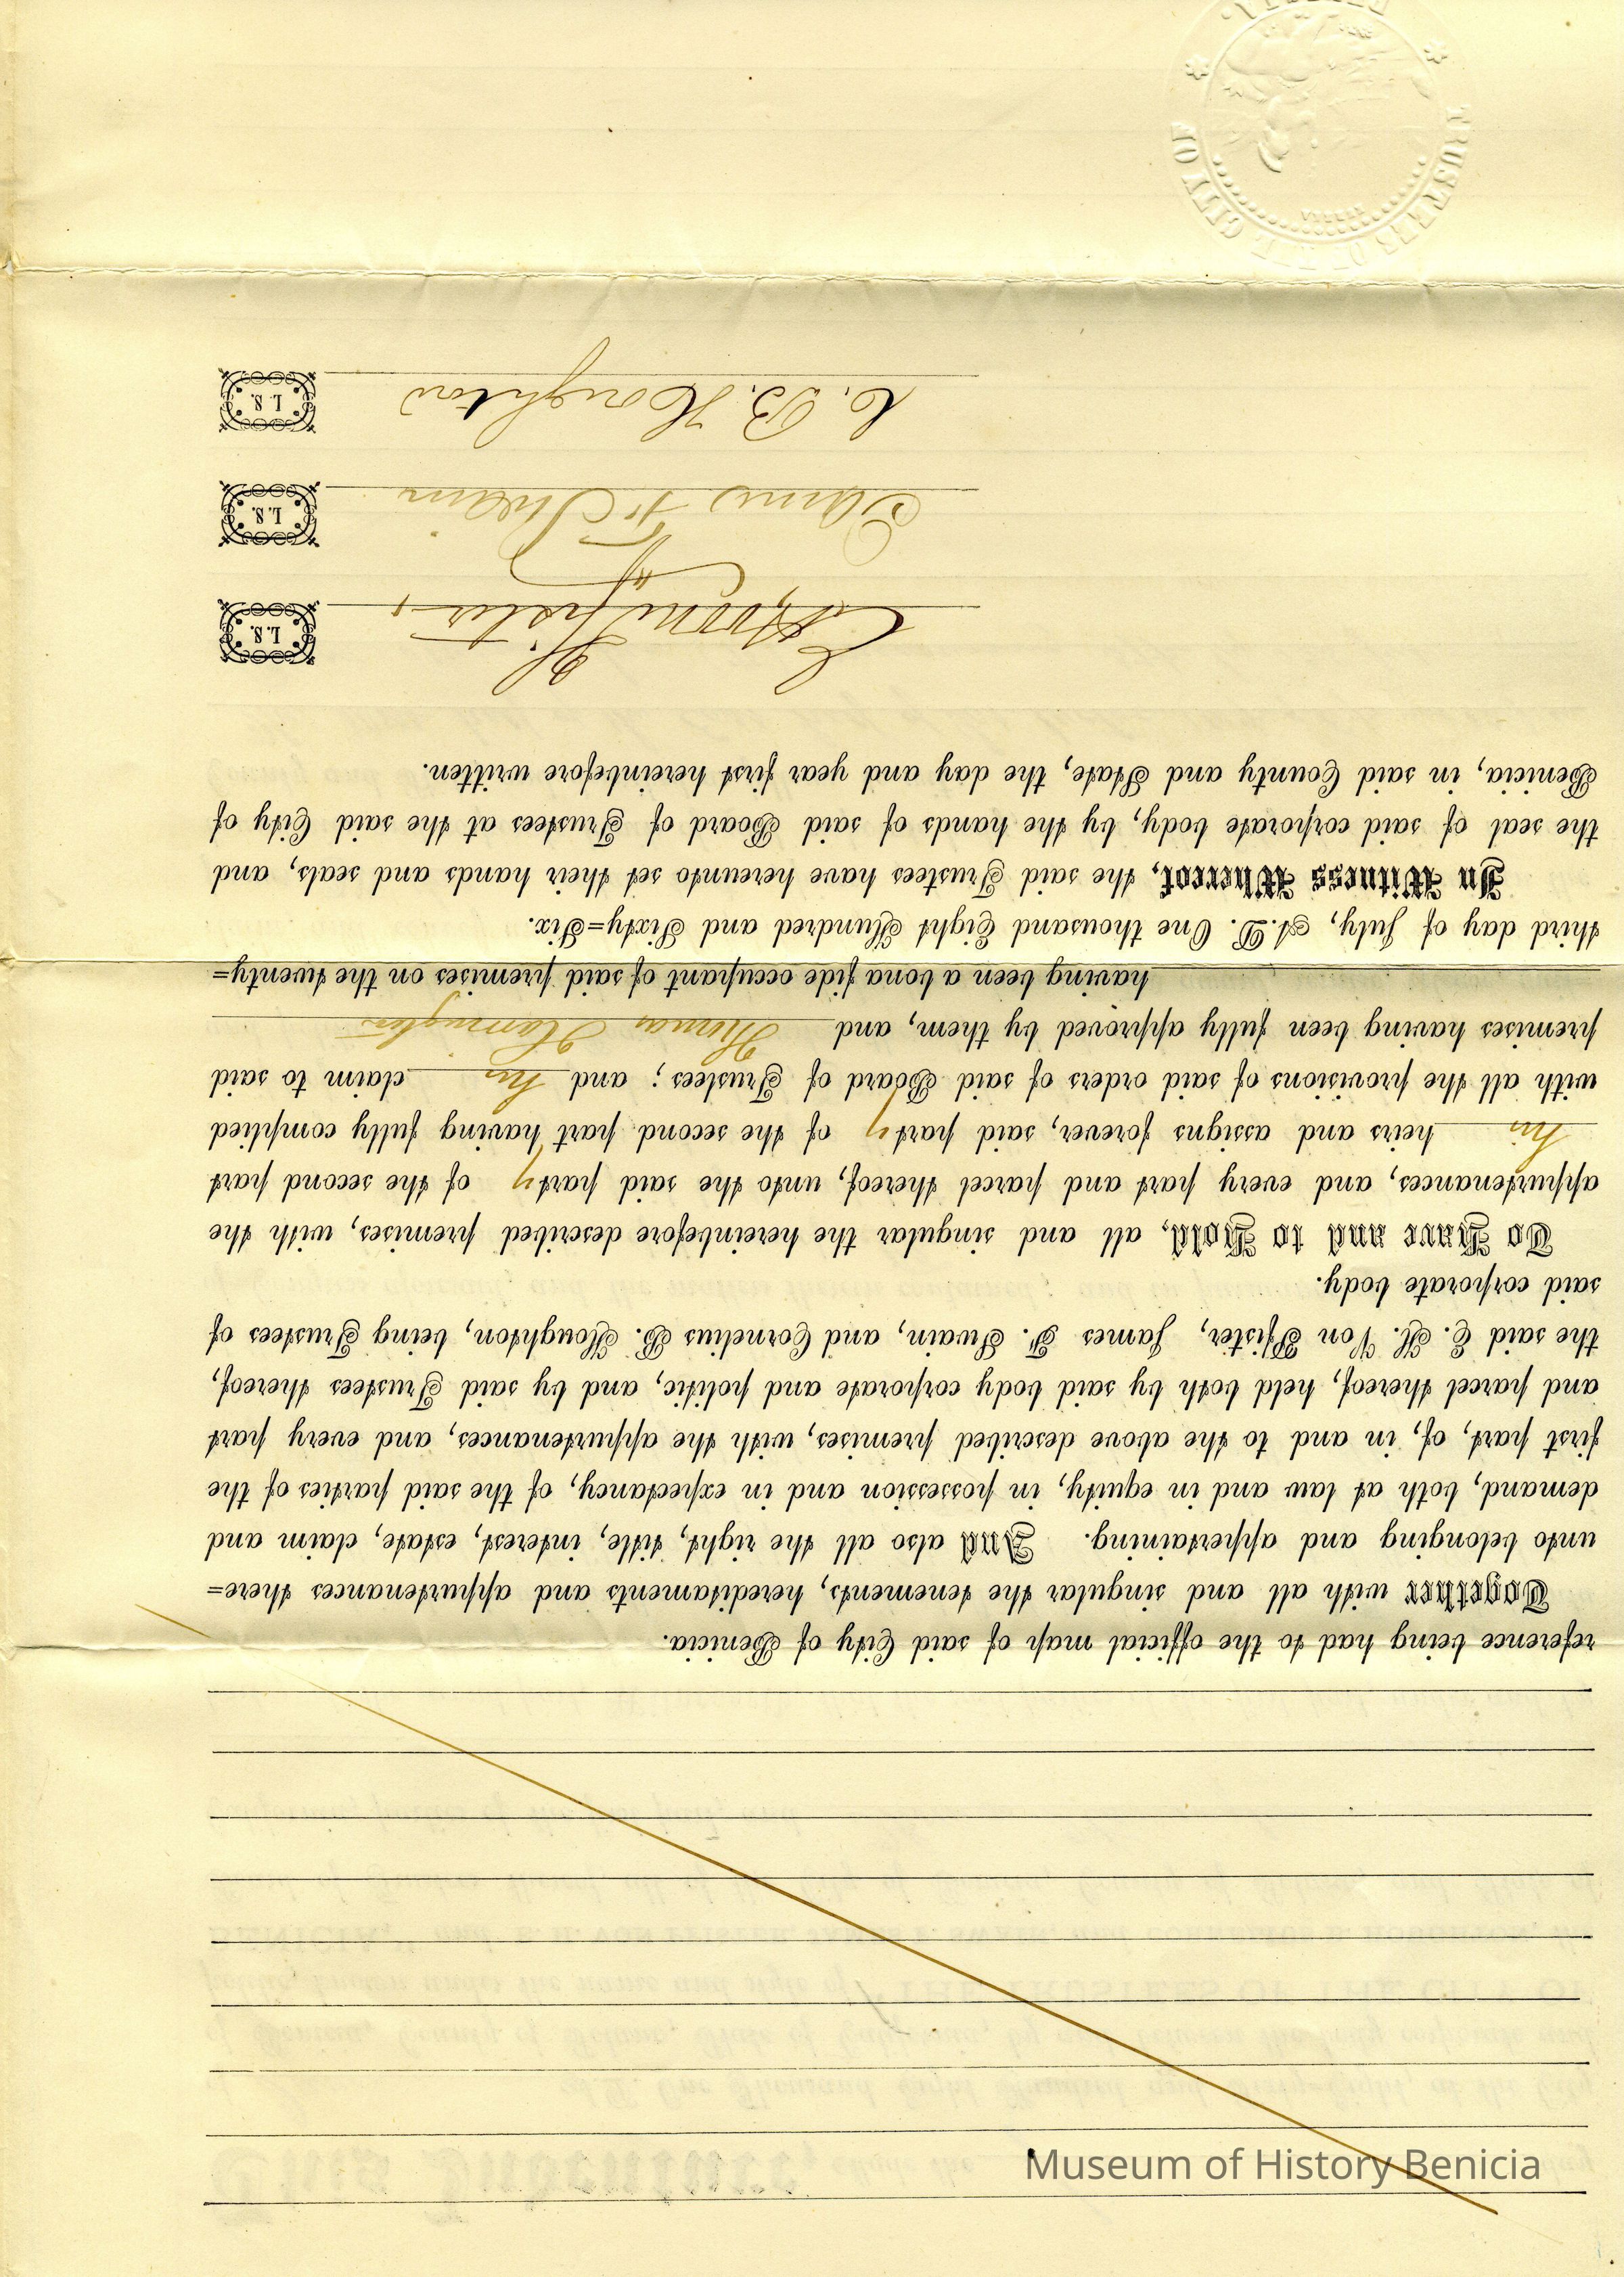 reference being had to the official map of said City of Benicia.
Together with all and singular the tenements, hereditaments and appurtenances there=
unto belonging and appertaining. And also all the right, title, interest, estate, claim and
demand, both at law and in equity, in possession and in expectancy, of the said parties of the
first part, of, in and to the above described premises, with the appurtenances, and every part
and parcel thereof, held both by said body corporate and politic, and by said Trustees thereof,
the said E. H. Von Pfister, James F. Swain, and Cornelius B. Houghton, being Trustees of
said corporate body.
To Have and to Hold, all and singular the hereinbefore described premises, with the
appurtenances, and every part and parcel thereof, unto the said party of the second part
his heirs and assigns forever, said party of the second part having fully complied
with all the provisions of said orders of said Board of Trustees; and his claim to said
premises having been fully approved by them, and Thomas Harrington
having been a bona fide occupant of said premises on the twenty=
third day of July, A.D. One thousand Eight Hundred and Sixty=Six.
In Witness Whereof, the said Trustees have hereunto set their hands and seals, and
the seal of said corporate body, by the hands of said Board of Trustees at the said City of
Benicia, in said County and State, the day and year first hereinbefore written.
E H von Pfister, L.S.
James F. Swain L.S.
C. B. Houghton L.S.
TRUSTEES OF THE CITY OF
Museum of History Benicia